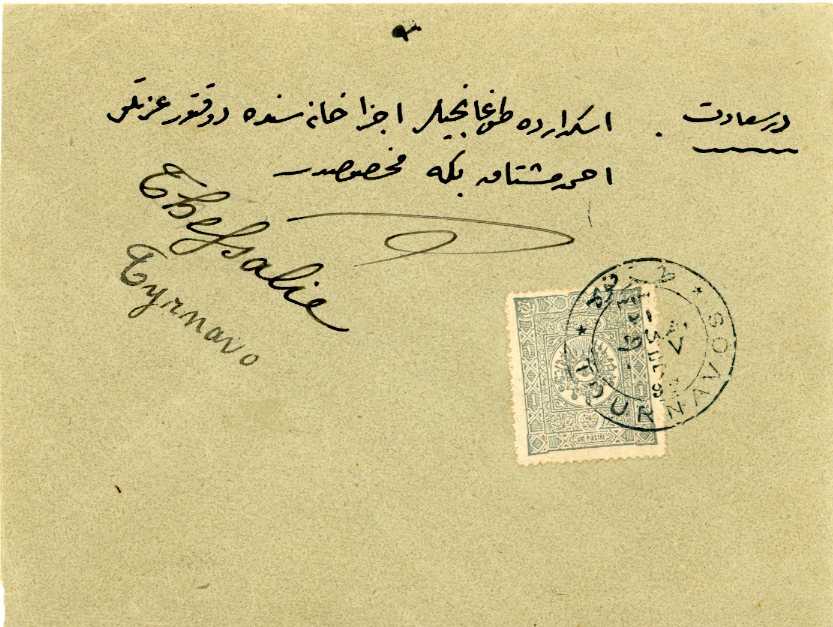 درسعادت . اسكدارده طوغانجيلر اجزا خانه سنده دوقتور عزتلو
احمد مشتاق بكه مخصوصدر
Thessalie
Tyrnavo
TOURNAVOS
ONE PIASTRE